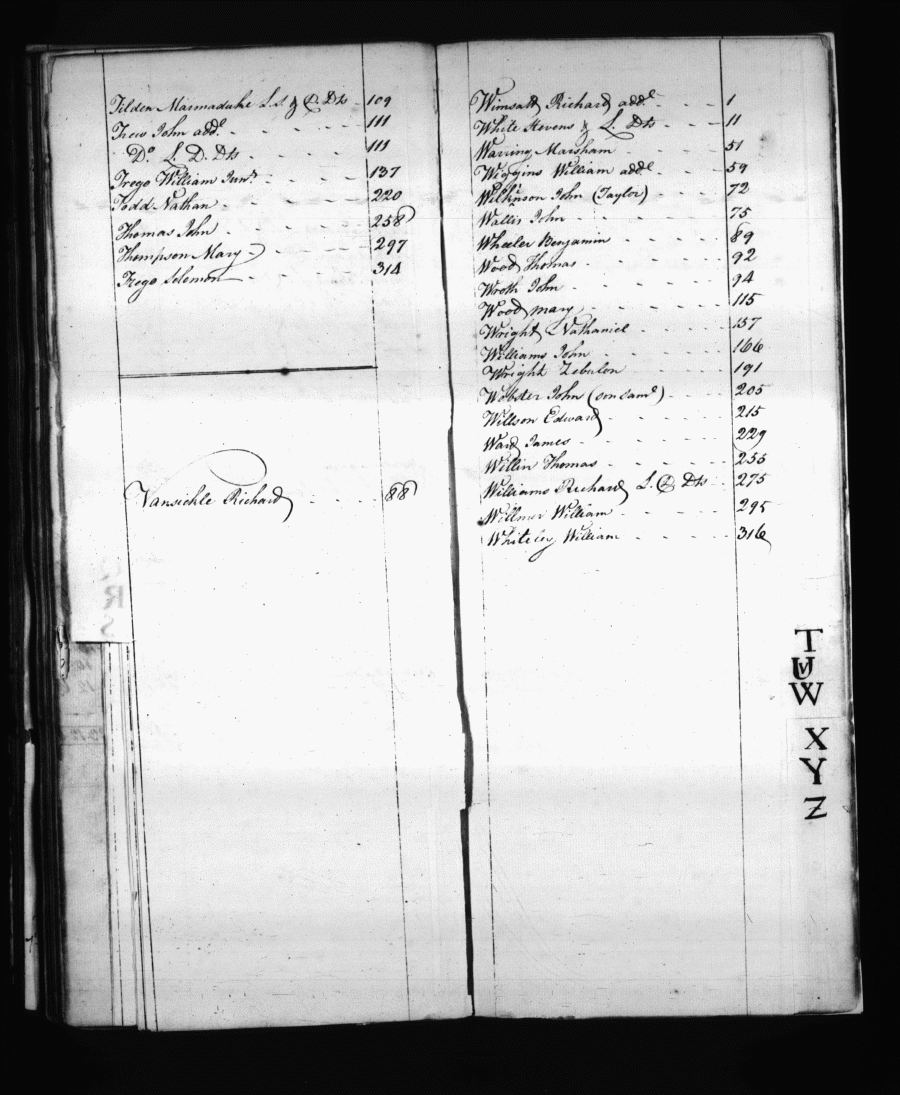 Tilden Marmaduke L. & D. Dts - 109
Trew John addl. - - - - - 111
Do. L. D. Dts - - - - - 111
Trego William Junr. - - - - 137
Todd Nathan - - - - - 220
Thomas John - - - - - 258
Thompson Mary - - - - 297
Trego Solomon - - - - 314
Vansickle Richard - - - - 88
Wimsatt Richard addl. - - - 1
White Stevens L. Dts - - - 11
Warring Marsham - - - - 51
Wiggins William addl. - - - 59
Wilkinson John (Taylor) - - - 72
Wallis John - - - - - 75
Wheeler Benjamin - - - - 89
Wood Thomas - - - - - 92
Wroth John - - - - - 94
Wood mary - - - - - 115
Wright Nathaniel - - - - 157
Williams John - - - - - 166
Wright Zebulon - - - - 191
Webster John (son Saml.) - - - 205
Willson Edward - - - - 215
Ward James - - - - - 229
Willin Thomas - - - - - 255
Williams Richard L. D. Dts - - 275
Willmer William - - - - 295
Whiteley William - - - - 316
R
S
T
UV
W
X
Y
Z